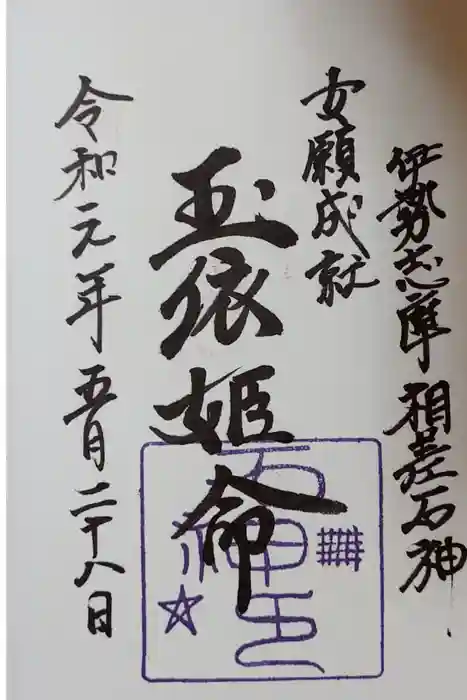 伊勢志摩 相差石神
女願成就
玉依姫命
石神之印
令和元年五月二十八日